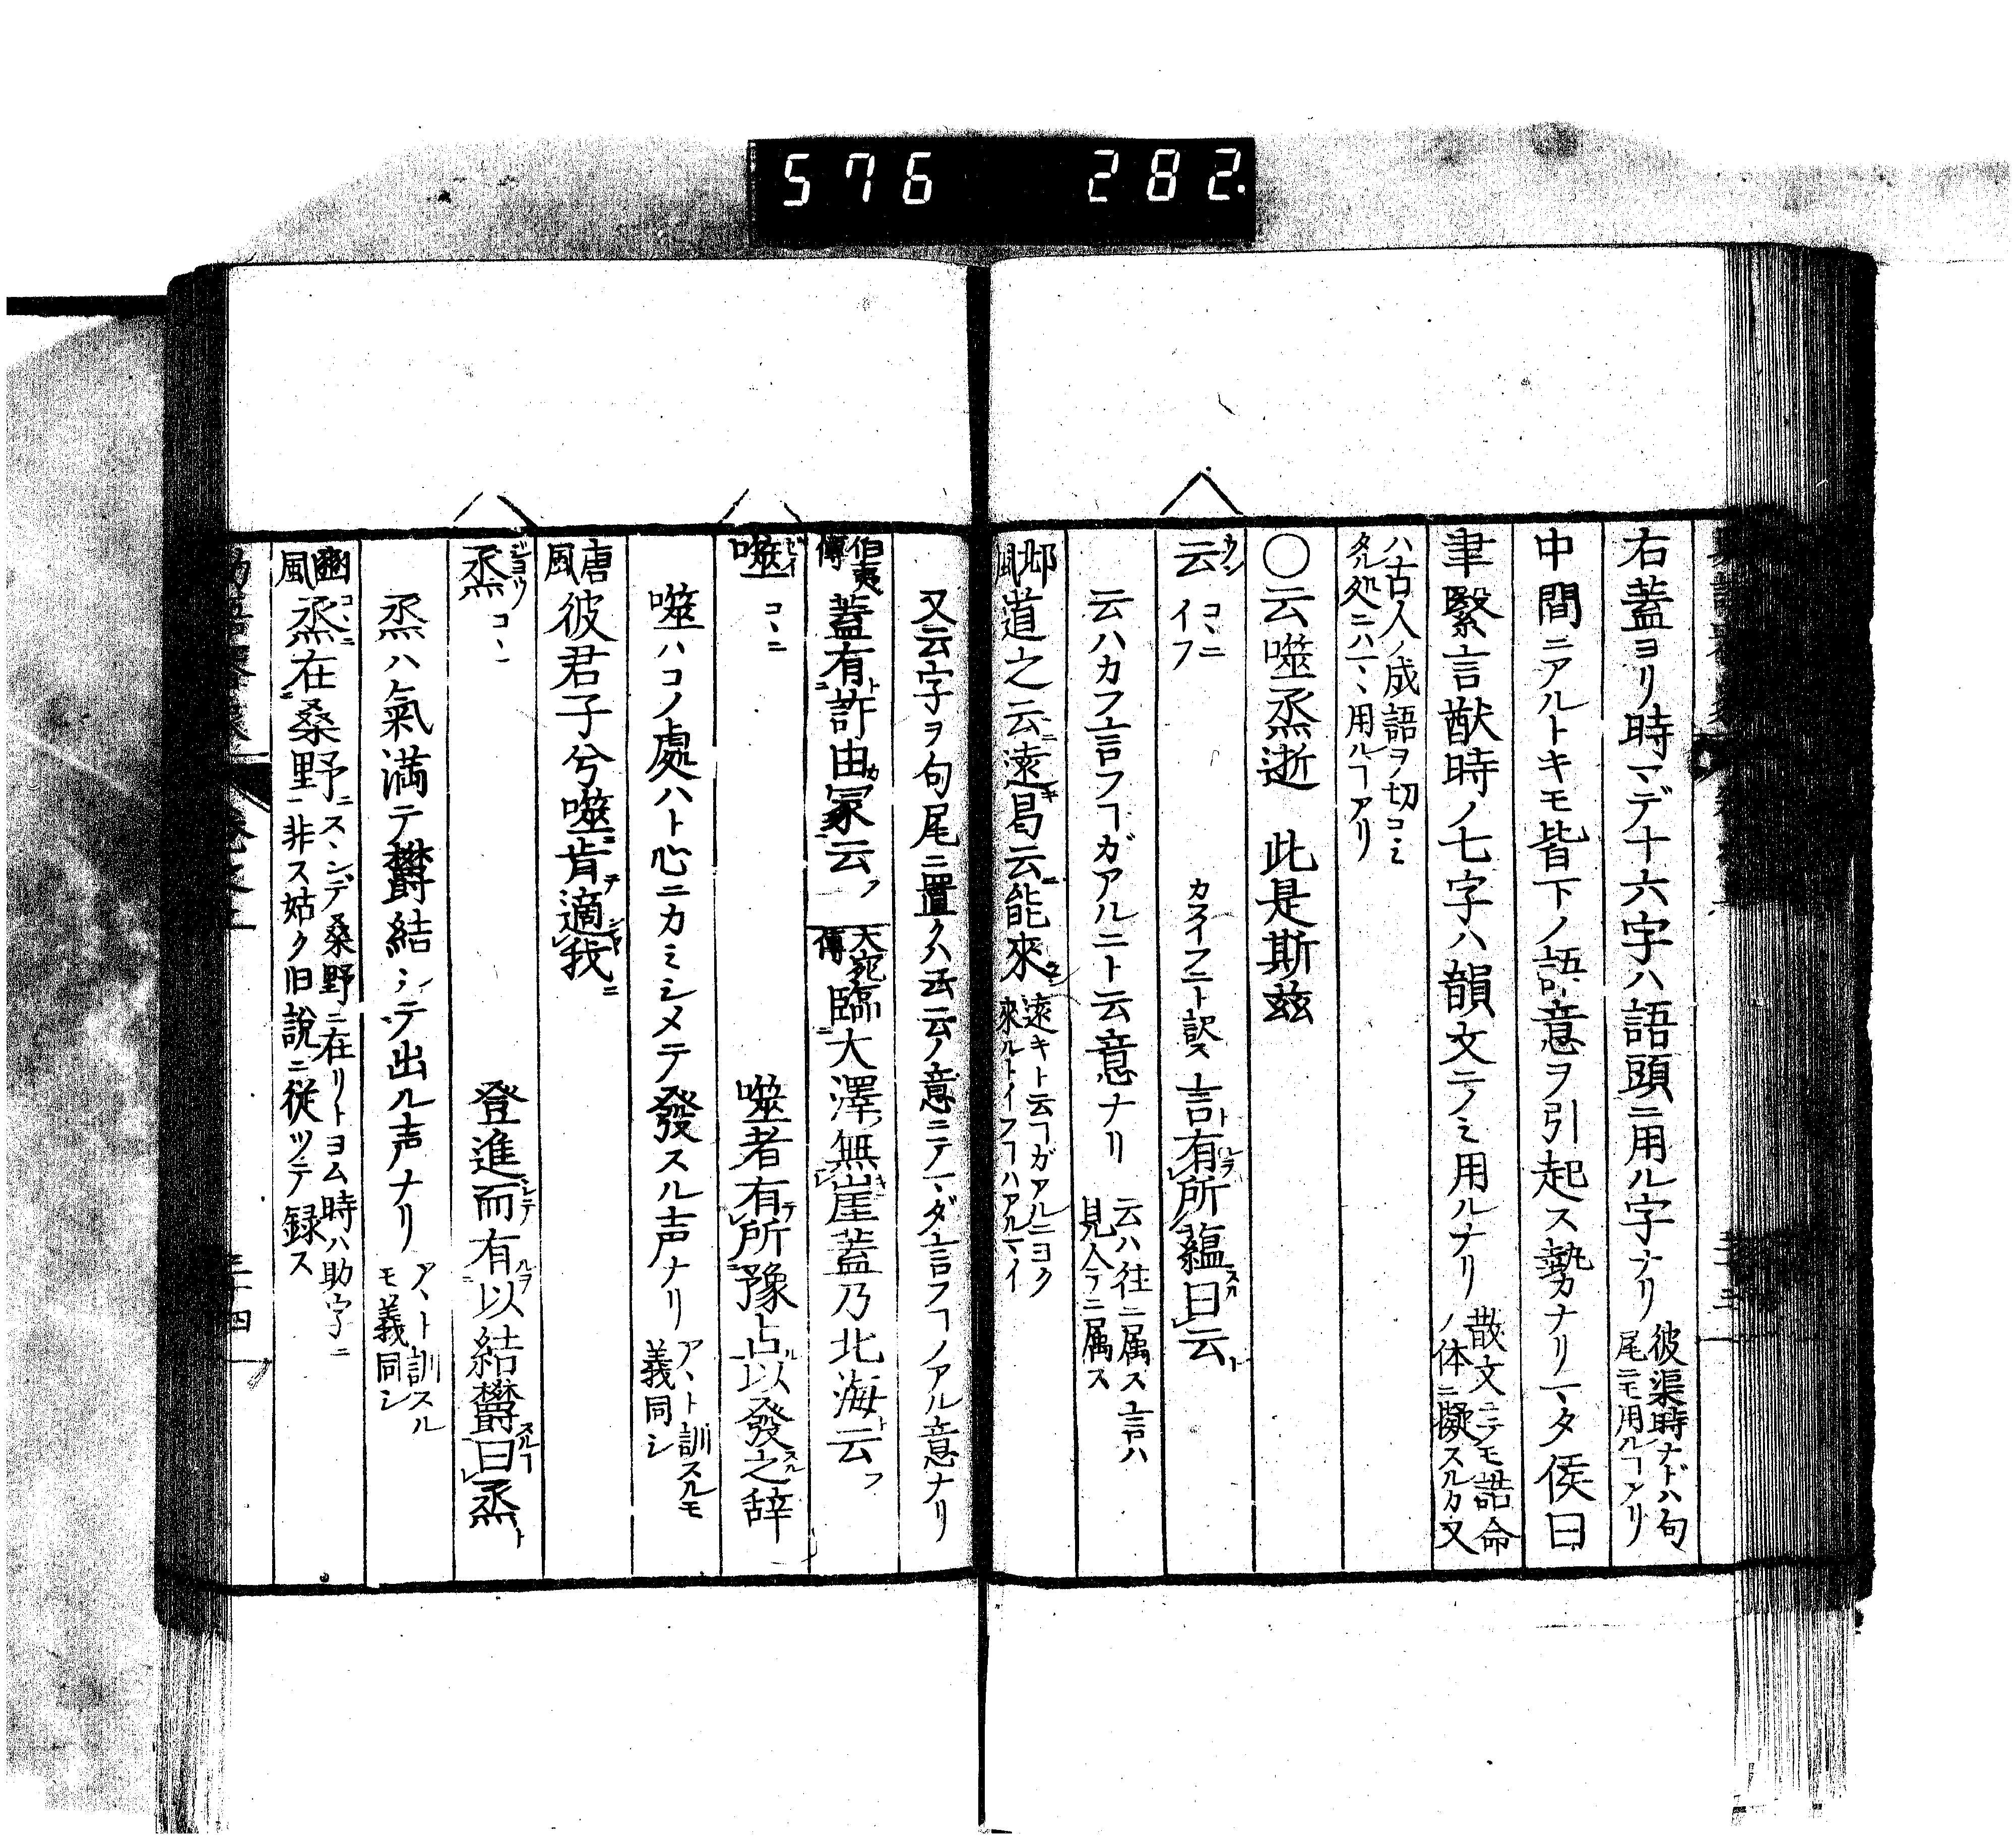 576 282.
右蓋ヨリ時マデ十六字ハ語頭ニ用ル字ナリ 彼渠時ナドハ句尾ニモ用ルヿアリ
中間ニアルトキモ皆下ノ語意ヲ引起ス勢カナリマタ侯曰
聿繄言猷時ノ七字ハ韻文ニノミ用ルナリ 散文ニテモ誥命ノ体ニ擬スルカ又
ハ古人ノ成語ヲ切コミタル処ニハマヽ用ルヿアリ
〇云噬烝逝 此是斯兹
云 ウン コヽニ イフ カクイフニト訳ス 言有所蘊曰云
云ハカフ言フヿガアルニト云意ナリ 云ハ往ニ属ス言ハ見人テニ属ス
邶風 道之云遠曷云能來 遠キト云ヿガアルニヨク來ルトイフヿハアルマイ
又云字ヲ句尾ニ置クハ云云ノ意ニテマダ言フヿノアル意ナリ
伯夷傳 蓋有許由冢云 大宛傳 臨大澤無崖蓋乃北海云
噬 ゼイ コヽニ 噬者有所豫占以發之辞
噬ハコノ處ハト心ニカミシメテ發スル声ナリ アヽト訓スルモ義同シ
唐風 彼君子兮噬肯適我
烝 ジヨウ コヽニ 登進而有以結欝曰烝
烝ハ氣満テ欝結シテ出ル声ナリ アヽト訓スルモ義同シ
豳風 烝在桑野 スヽンデ桑野ニ在リトヨム時ハ助字ニ非ス姑ク旧説ニ従ツテ録ス